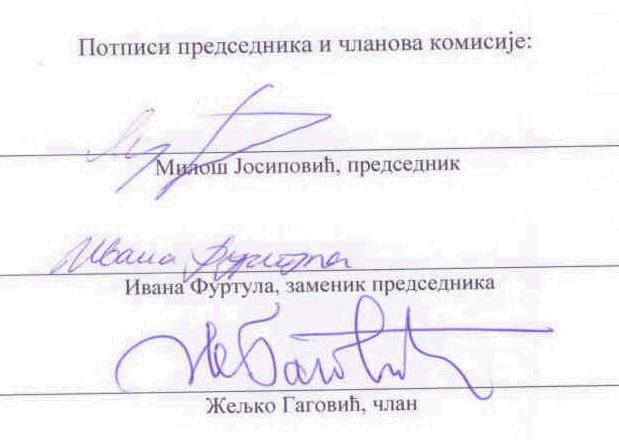 Потписи председника и чланова комисије:
Милош Јосиповић, председник
Ивана Фуртула
Ивана Фуртула, заменик председника
Жељко Гаговић, члан